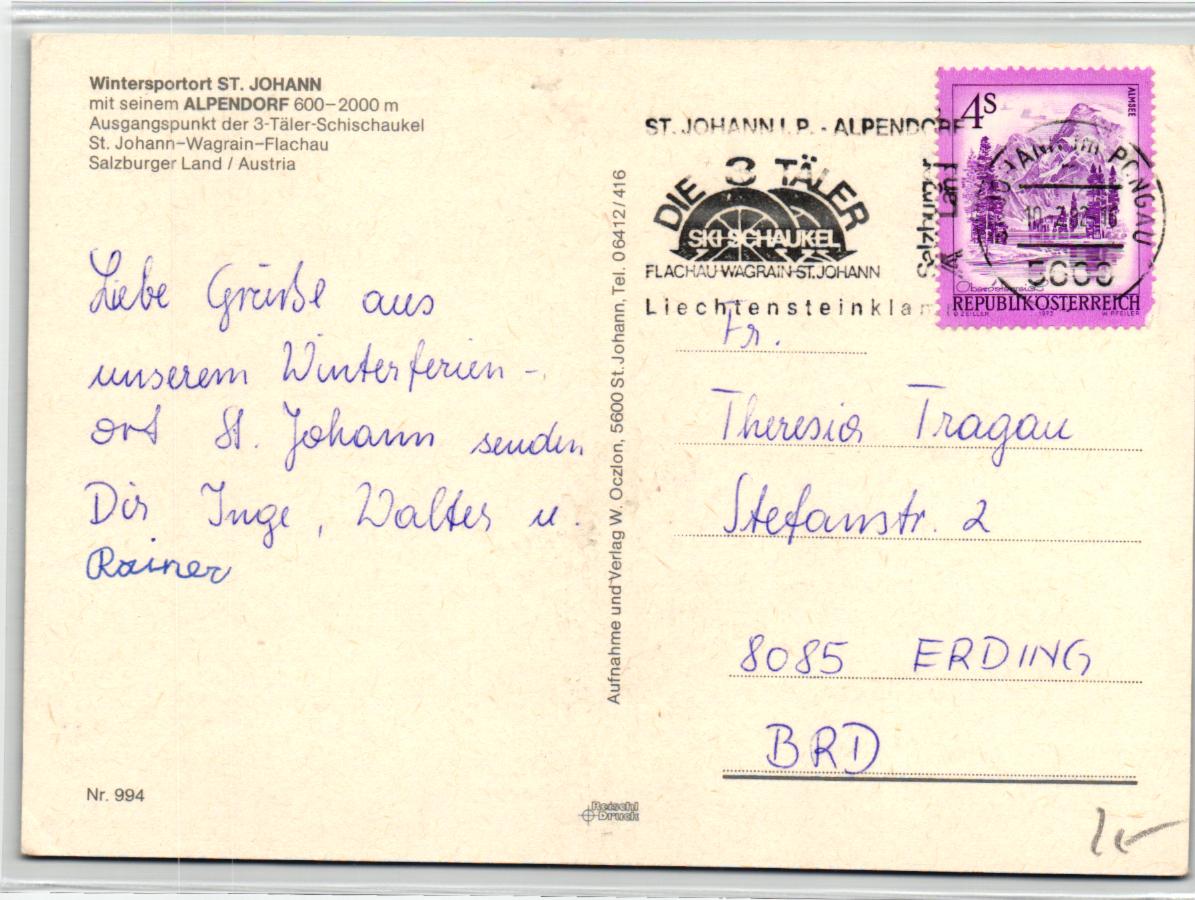 Wintersportort ST. JOHANN
mit seinem ALPENDORF 600–2000 m
Ausgangspunkt der 3-Täler-Schischaukel
St. Johann–Wagrain–Flachau
Salzburger Land / Austria
Liebe Grüße aus
unserem Winterferien -
ort St. Johann senden
Dir Inge, Walter u.
Rainer
Nr. 994
Aufnahme und Verlag W. Oczlon, 5600 St. Johann, Tel. 06412/416
Reischl
Druck
ST. JOHANN I. P. - ALPENDORF
DIE 3 TÄLER
SKI SCHAUKEL
FLACHAU-WAGRAIN-ST. JOHANN
Liechtensteinklam
Salzburger
Land
4S
ALMSEE
JOHANN IM PONGAU
5600
Oberösterreich
REPUBLIK ÖSTERREICH
O. ZEILLER 1973 W. PFEILER
Fr.
Theresia Tragau
Stefanstr. 2
8085 ERDING
BRD